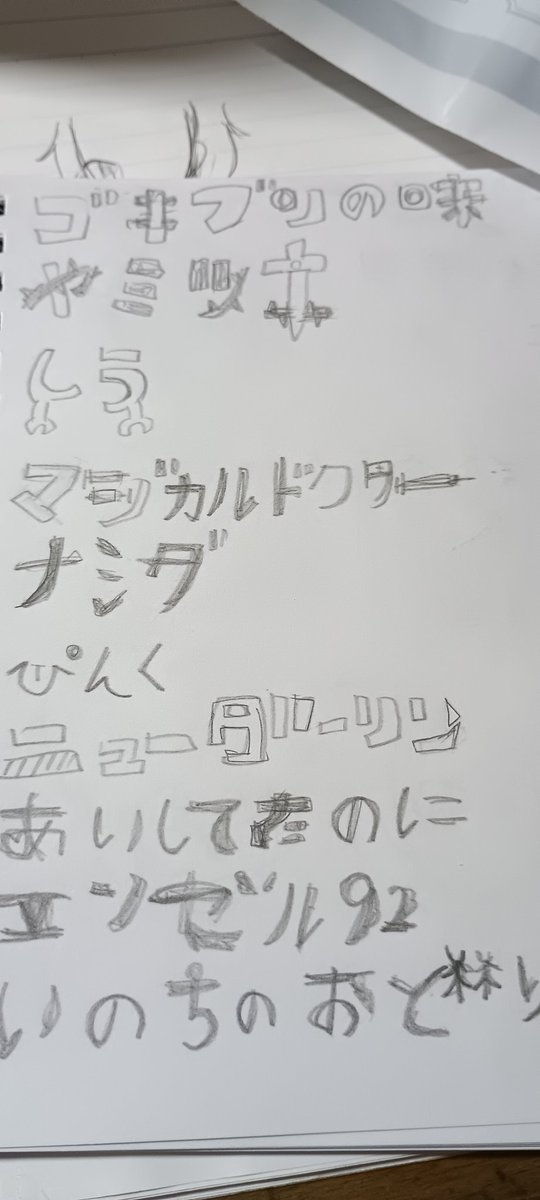 ゴキブリの味
ヤミツキ
マジカルドクター
ナミダ
ぴんく
ニューダーリン
あいしてたのに
エンゼル92
いのちのおと